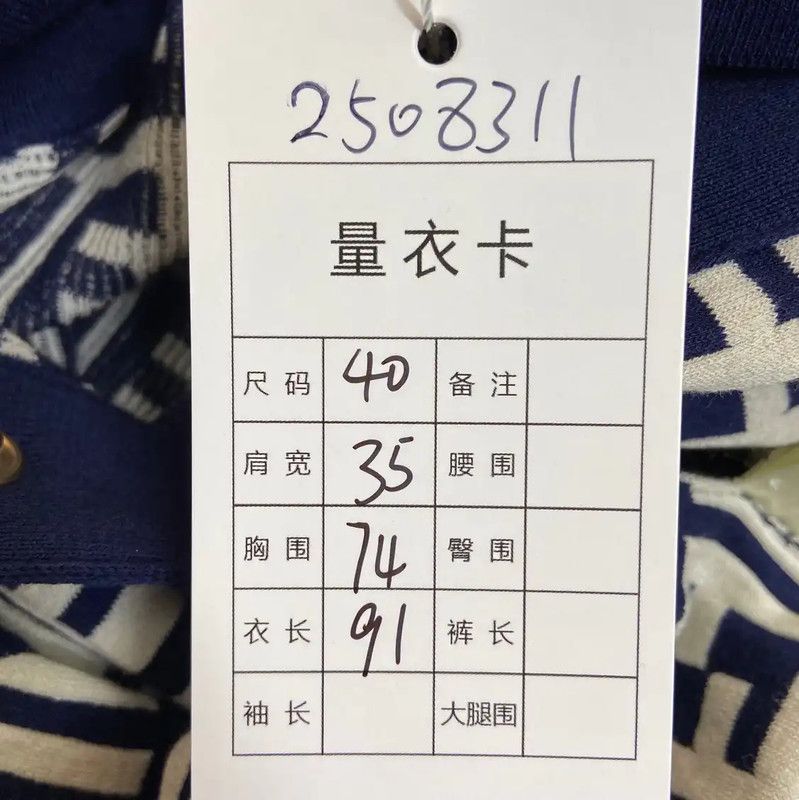 2508311
量衣卡
尺码 40 备注
肩宽 35 腰围
胸围 74 臀围
衣长 91 裤长
袖长 大腿围